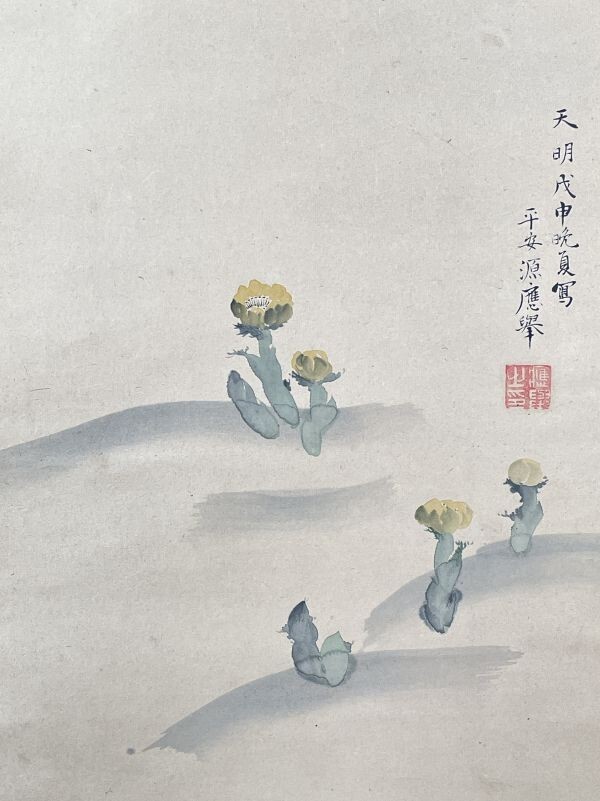 天明戊申晩夏寫
平安源應舉
應舉之印